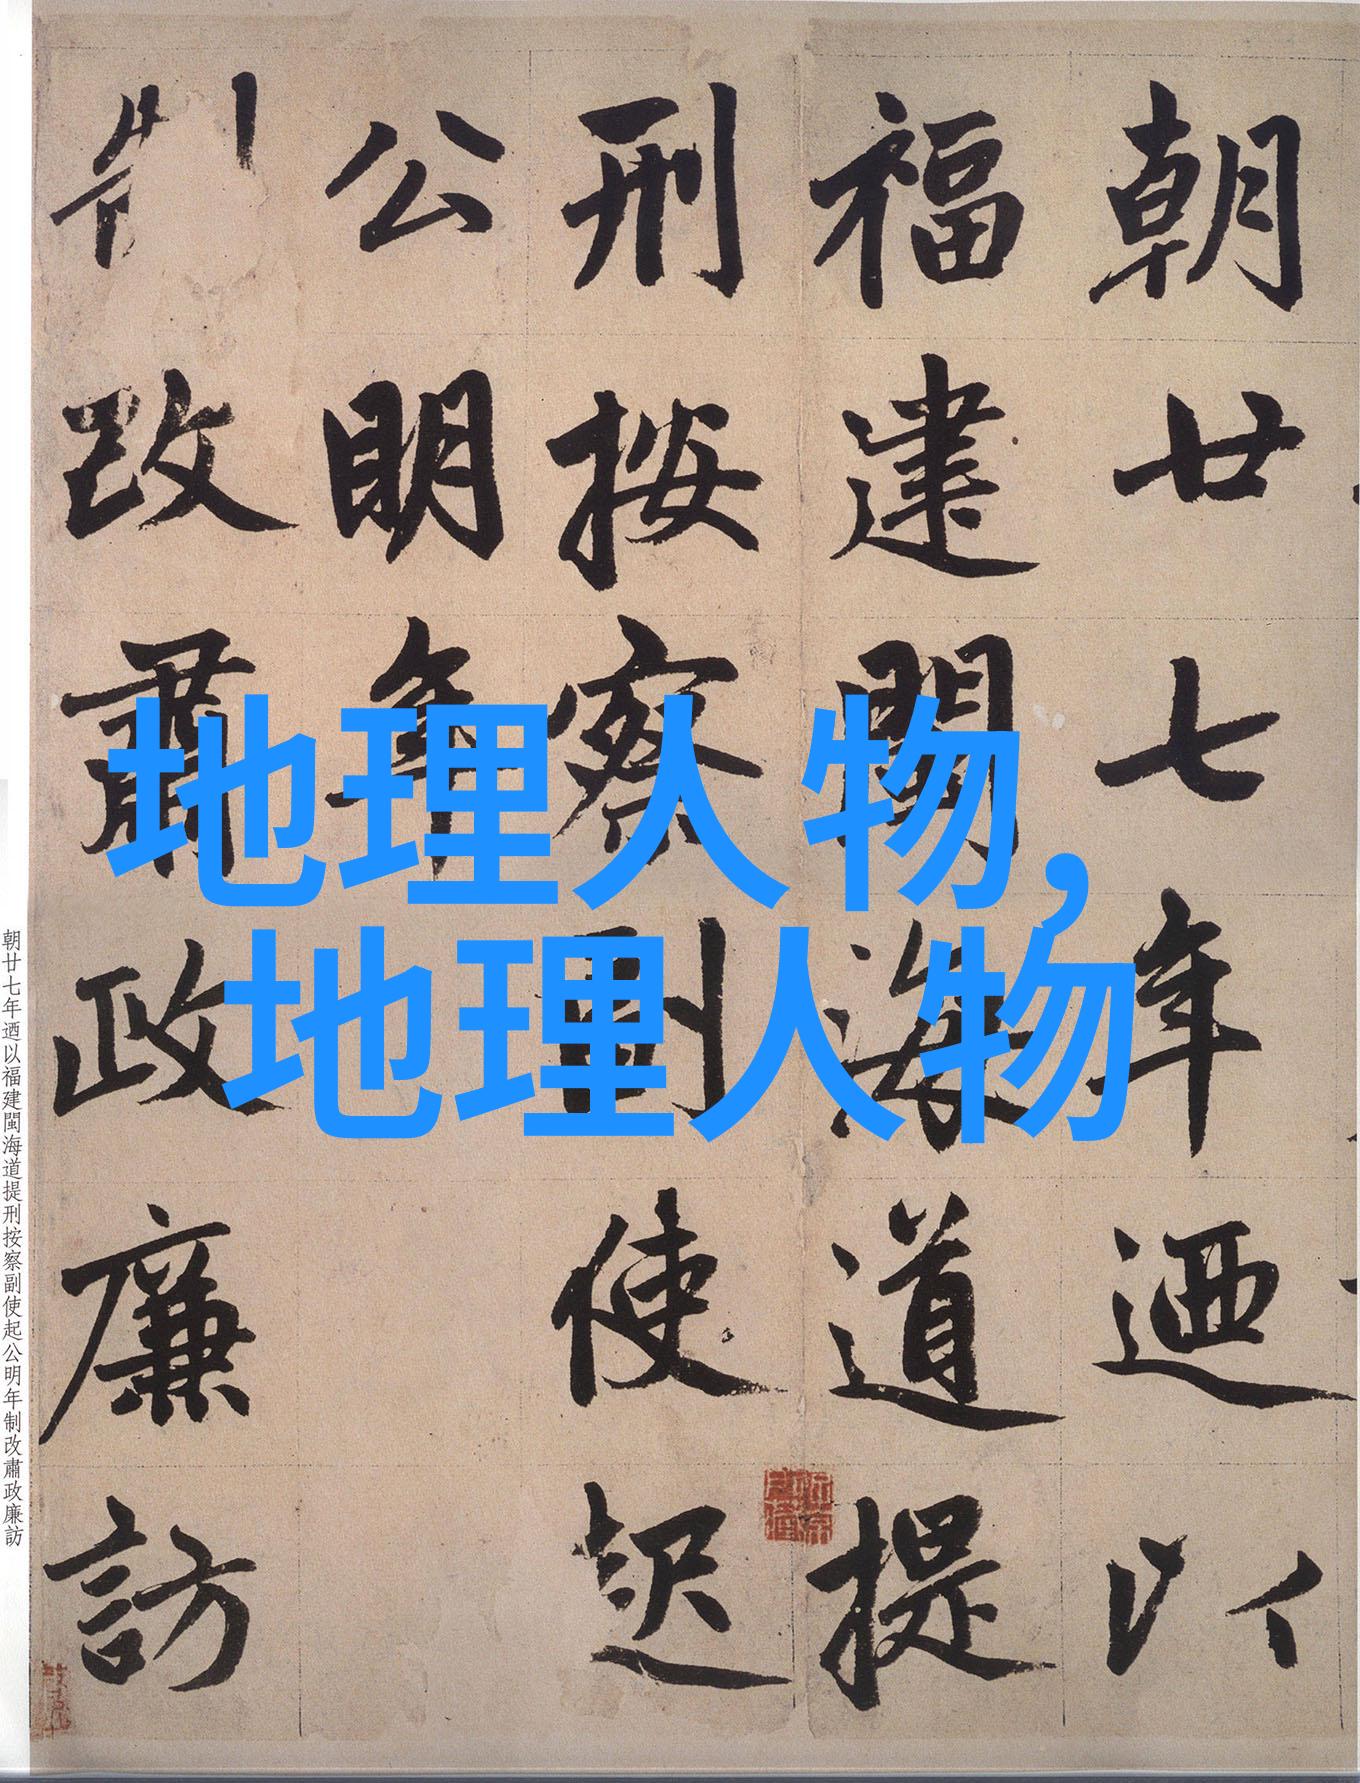 朝廿七年迺以
福建閩海道提
刑按察副使起
公明年
制改肅政廉訪
朝廿七年迺以福建閩海道提刑按察副使起公明年制改肅政廉訪
地理人物,
地理人物